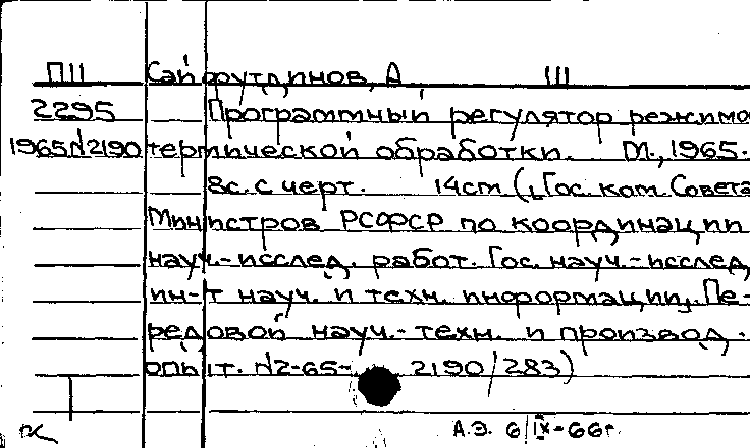 П11 Сайфутдинов, А. III
2295 Программный регулятор режимо
1965 N2190 термической обработки. М., 1965.
8с. с черт. 14см (Гос. ком. Совета
Министров РСФСР по координации
науч.-исслед. работ. Гос. науч.-исслед.
ин-т науч. и техн. информации. Пе-
редовой науч.-техн. и производ.
опыт. N2-65- 2190/283)
А.Э. 6/IX-66г.